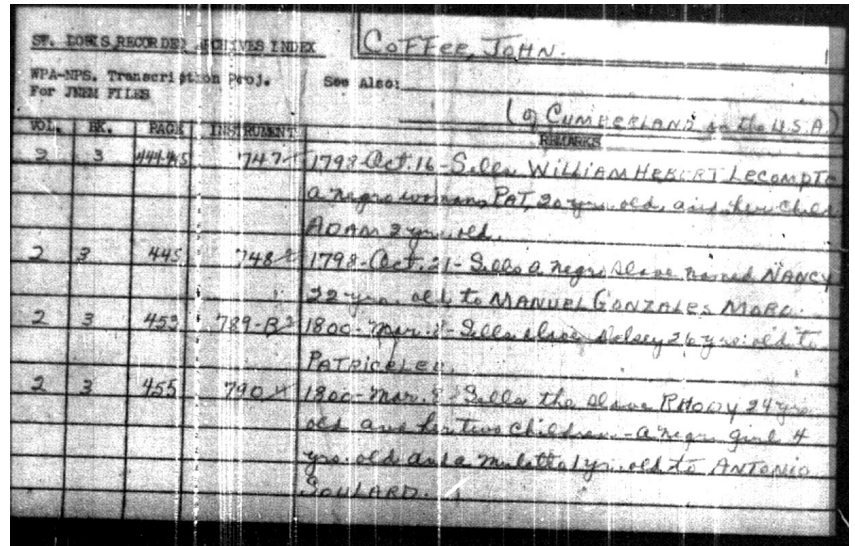 ST. LOUIS RECORDED ARCHIVES INDEX
COFFEE, JOHN.
1
WPA-NPS. Transcription Proj.
See Also:
For JNEM FILES
(of CUMBERLAND in the U.S.A)
VOL. BK. PAGE INSTRUMENT REMARKS
2 3 444-445 747 1798-Oct. 16-Sells WILLIAM HEBERT LECOMPTE
a negro woman, PAT, 20 yrs. old, and her child
ADAM 2 yrs. old.
2 3 445 748 1798-Oct. 21-Sells a negro slave named NANCY
22 yrs. old to MANUEL GONZALES MORO.
2 3 453 789-B 1800-Mar. Sells slave 26 yrs. old to
PATRICK LEE.
2 3 455 790 1800-Mar. Sells the slave RHODY 24 yrs
old and her two children-a negro girl 4
yrs. old and a mulatto 1 yr. old to ANTONIO
SOULARD.